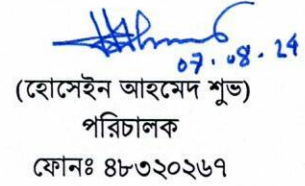 07.08.24
(হোসেইন আহমেদ শুভ)
পরিচালক
ফোনঃ ৪৮৩২০২৬৭